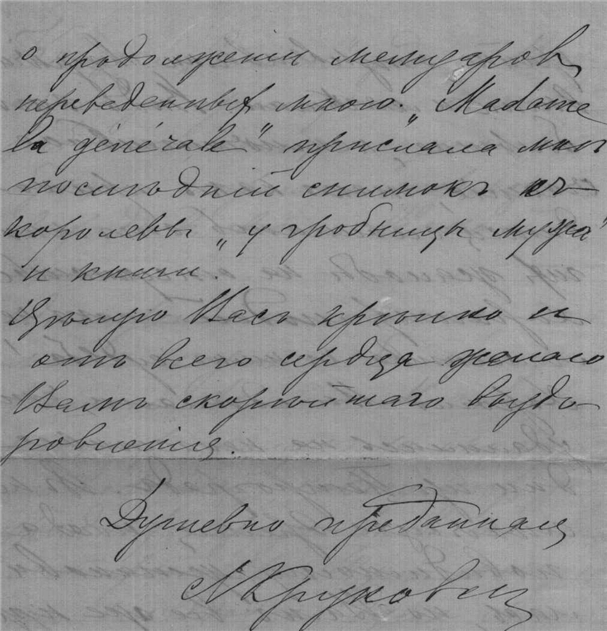 о продолженіи мемуаровъ
переведенныхъ мною. „Madame
la générale" прислала мнѣ
послѣдній снимокъ съ
королевы „у гробницы мужа"
и книги
Цѣлую Васъ крѣпко и
отъ всего сердца желаю
Вамъ скорѣйшаго выздо
ровленія.
Душевно преданная